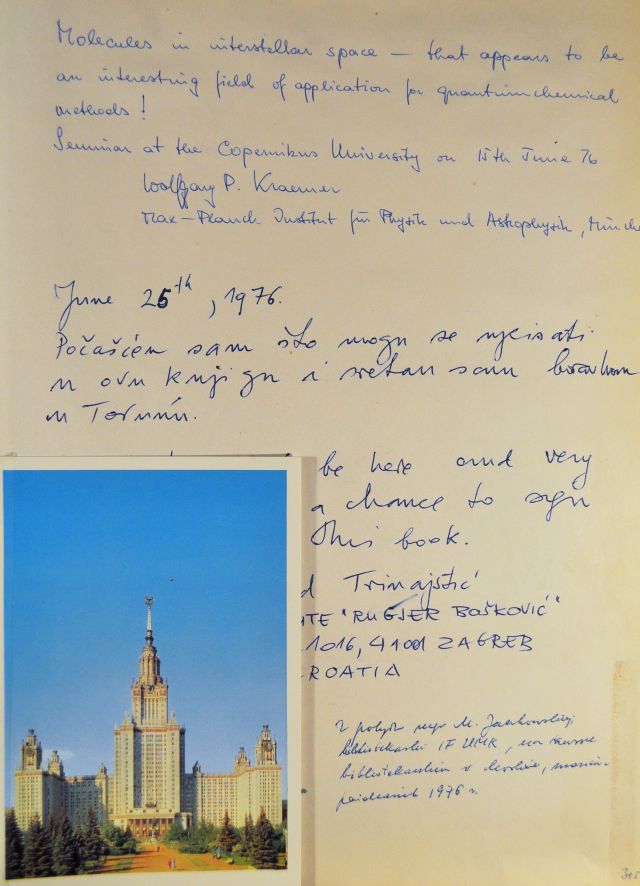 Molecules in interstellar space – that appears to be
an interesting field of application for quantumchemical
methods!
Seminar at the Copernikus University on 15th June 76
Wolfgang P. Kraemer
Max-Planck Institut für Physik und Astrophysik, Münche
June 25-th, 1976.
Počašćen sam što mogu se upisati
u ovu knjigu i sretan sam boravkom
u Torunu.
be here and very
a chance to sign
this book.
d Trinajstić
TE "RUGJER BOŠKOVIĆ"
1016, 41001 ZAGREB
ROATIA
Z pobytu mgr M. Jankowskiej
bibliotekarki IF UMK, na
w Moskwie,
październik 1976 r.